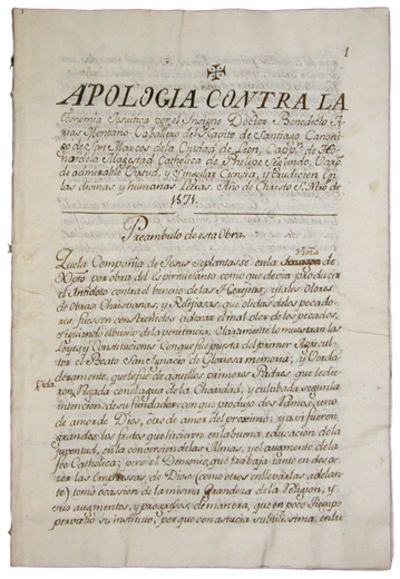 1
APOLOGIA CONTRA LA
Economia Jesuitica por el Insigne Doctor Benedicto A
rias Montano Caballero del Havito de Santiago, Canoni
go de San Marcos de la Ciudad de Leon, Cappn. de Ho
nor de la Magestad Catholica de Phelipe Segundo, Varon
de admirable Virtud, y Singular Ciencia, y erudicion en
las divinas y humanas Letras. Año de Christo S. Nro. de
1571.
Preambulo de esta Obra.
Viña
Que la Compañia de Jesus se plantasse en la de
Xpto por obra del Espiritu Santo como que decia producir
el Antidoto contra el beneno de las Heregias, y dar olores
de obras Christianas, y Religiosas, que olidas de los pecado
res, fuessen constreñidos a dexar el mal olor de los pecados,
siguiendo el buen de la penitencia, claramente lo muestran las
Leyes y Constituciones con que fue puesta del primer Agricul
tor el Beato San Ignacio de Gloriosa memoria; y Verda
deramente, que le fue de aquellos primeros Padres que le die
Vida
ron, Regada con el agua de la Charidad, y cultibada segun la
intencion de su fundador, con que produjo dos Ramos, uno
de amor de Dios, otro de amor del proximo; y assi fueron
grandes los frutos que hicieron en la buena educacion de la
jubentud, en la conversion de las Almas, y el augmento de la
fee Catholica; pero el Demonio, que trabaja tanto en desca
er las Empressas de Dios (como otros en llevarlas adelan
te) tomó ocassion de la misma Grandeza de la Religion, y
sus augmentos, y progressos, de manera, que en poco tiempo
pervirtió su instituto; porque con astucia subtilissima, en lu